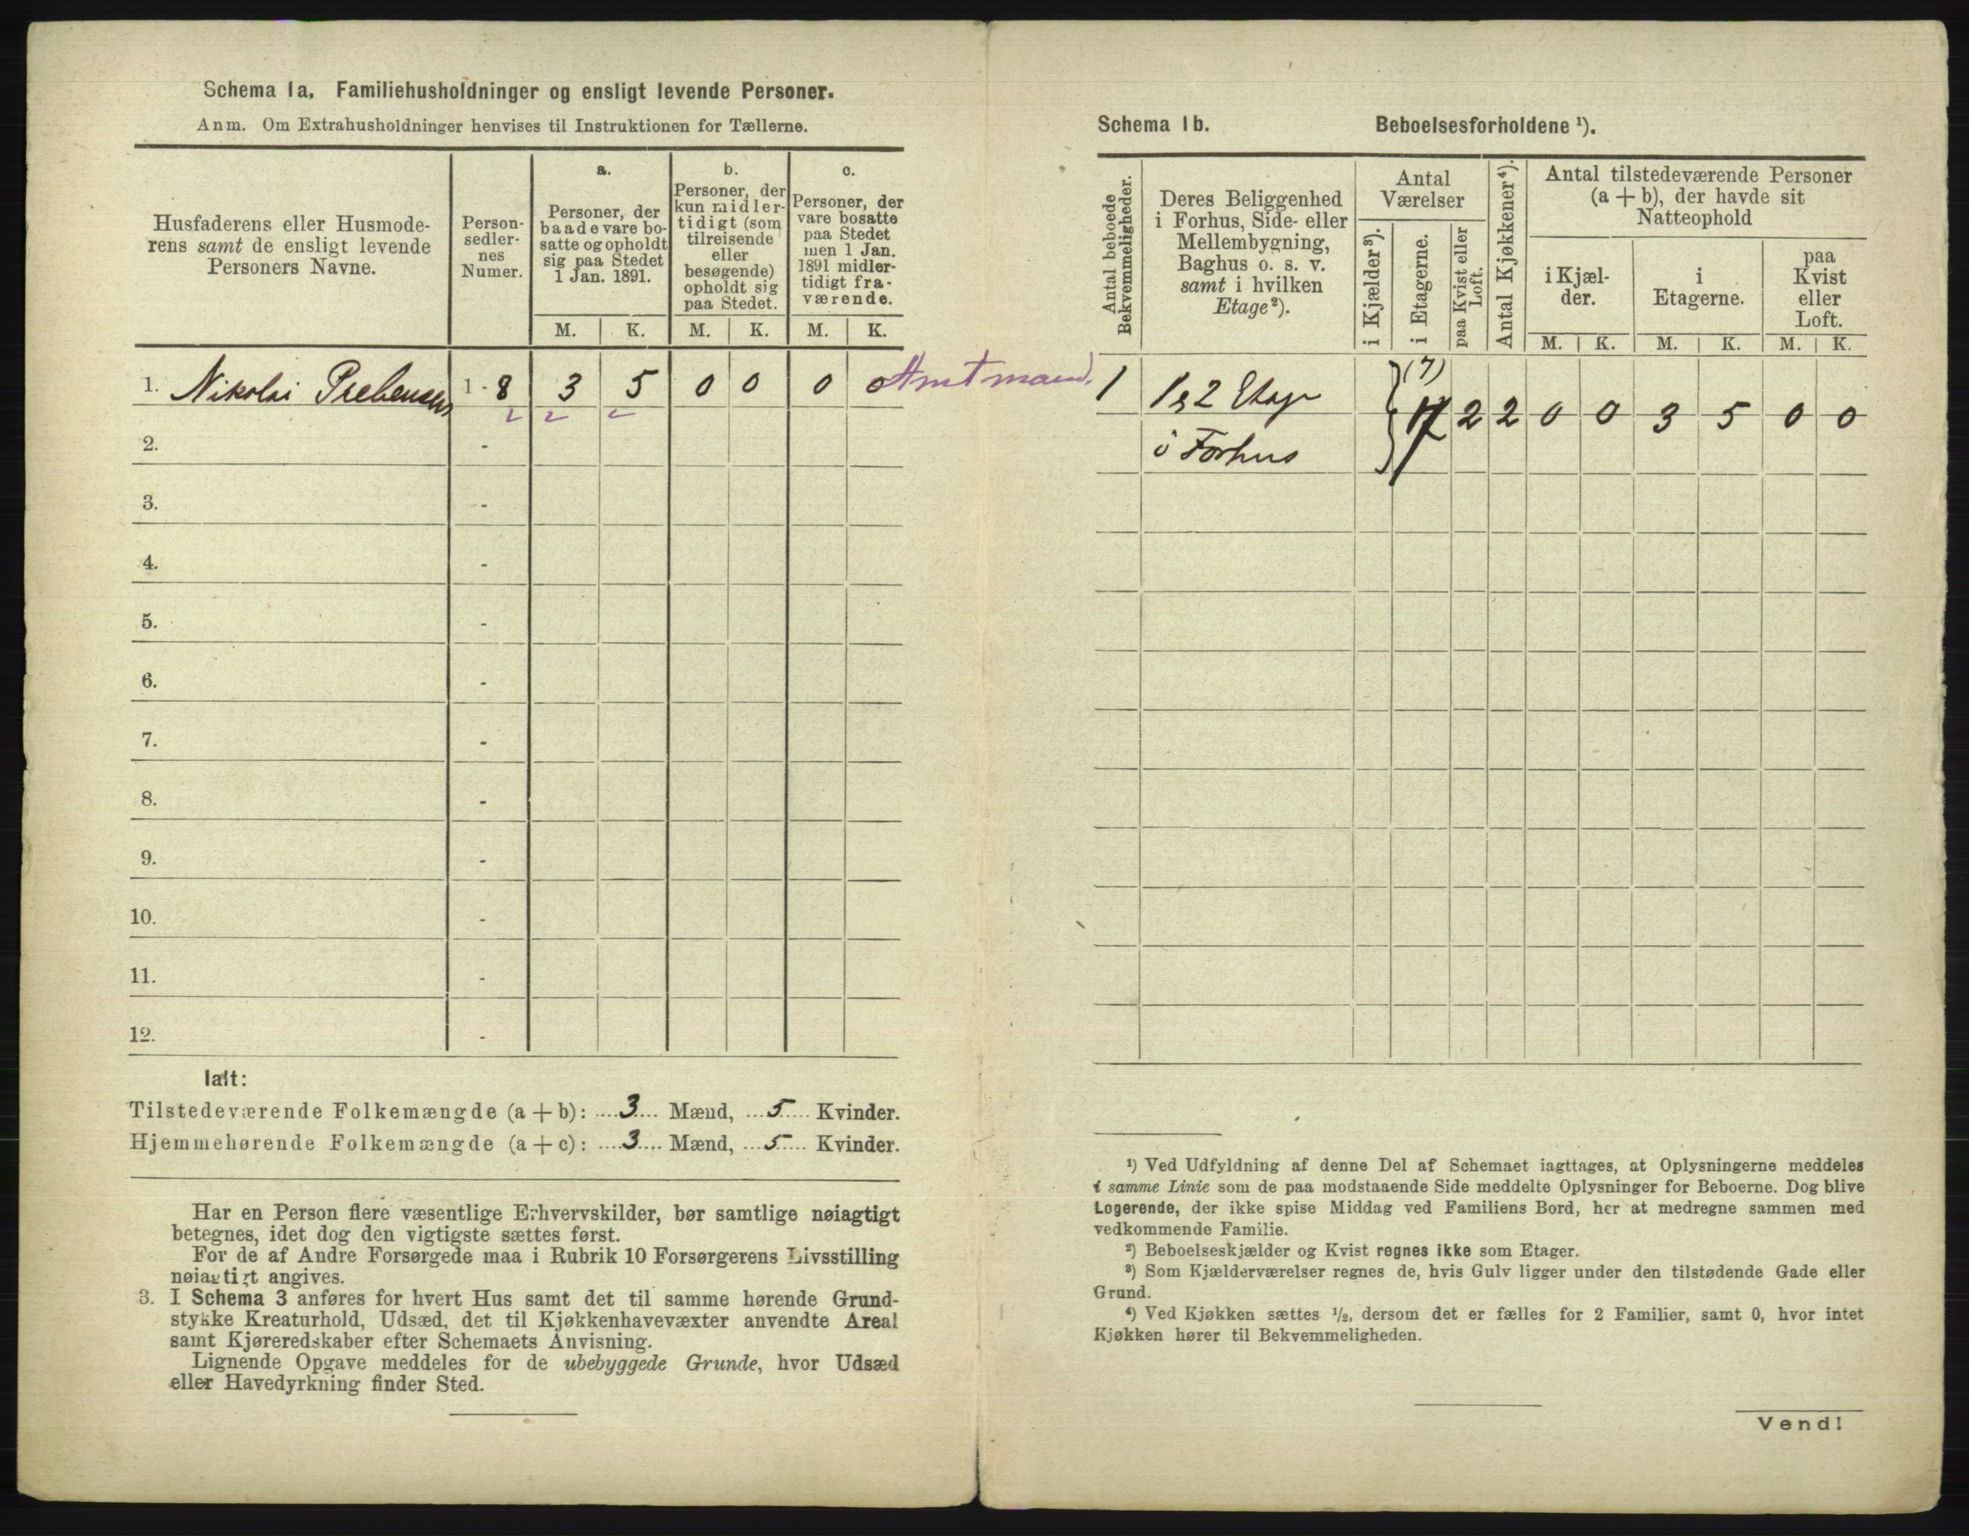 Schema 1a. Familiehusholdninger og ensligt levende Personer.
Anm. Om Extrahusholdninger henvises til Instruktionen for Tællerne.
Husfaderens eller Husmode-
rens samt de ensligt levende
Personers Navne.
Person-
sedler-
nes
Numer.
a.
Personer, der
baade vare bo-
satte og opholdt
sig paa Stedet
1 Jan. 1891.
b.
Personer, der
kun midler-
tidigt (som
tilreisende
eller
besøgende)
opholdt sig
paa Stedet.
c.
Personer, der
vare bosatte
paa Stedet
men 1 Jan.
1891 midler-
tidigt fra-
værende.
M. K. M. K. M. K.
1. Nikolai Prebensen 1 - 8 3 5 0 0 0 0 Amtmand.
2. -
3. -
4. -
5. -
6. -
7. -
8. -
9. -
10. -
11. -
12. -
Ialt:
Tilstedeværende Folkemængde (a + b): 3 Mænd, 5 Kvinder.
Hjemmehørende Folkemængde (a + c): 3 Mænd, 5 Kvinder.
Har en Person flere væsentlige Erhvervskilder, bør samtlige nøiagtigt
betegnes, idet dog den vigtigste sættes først.
For de af Andre Forsørgede maa i Rubrik 10 Forsørgerens Livsstilling
nøiagtigt angives.
3. I Schema 3 anføres for hvert Hus samt det til samme hørende Grund-
stykke Kreaturhold, Udsæd, det til Kjøkkenhavevæxter anvendte Areal
samt Kjøreredskaber efter Schemaets Anvisning.
Lignende Opgave meddeles for de ubebyggede Grunde, hvor Udsæd
eller Havedyrkning finder Sted.
Schema 1b. Beboelsesforholdene ¹).
Antal beboede
Bekvemmeligheder.
Deres Beliggenhed
i Forhus, Side- eller
Mellembygning,
Baghus o. s. v.
samt i hvilken
Etage²).
Antal
Værelser
i Kjælder³).
i Etagerne.
paa Kvist eller
Loft.
Antal Kjøkkener⁴).
Antal tilstedeværende Personer
(a + b), der havde sit
Natteophold
i Kjæl-
der.
i
Etagerne.
paa
Kvist
eller
Loft.
M. K. M. K. M. K.
(7)
1 1 & 2 Etage
i Forhus
7 2 2 0 0 3 5 0 0
¹) Ved Udfyldning af denne Del af Schemaet iagttages, at Oplysningerne meddeles
i samme Linie som de paa modstaaende Side meddelte Oplysninger for Beboerne. Dog blive
Logerende, der ikke spise Middag ved Familiens Bord, her at medregne sammen med
vedkommende Familie.
²) Beboelseskjælder og Kvist regnes ikke som Etager.
³) Som Kjælderværelser regnes de, hvis Gulv ligger under den tilstødende Gade eller
Grund.
⁴) Ved Kjøkken sættes ½, dersom det er fælles for 2 Familier, samt 0, hvor intet
Kjøkken hører til Bekvemmeligheden.
Vend!